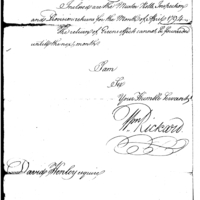 Inclosed are the Muster Rolls, Inspection
and Pension return for the Month of April 1794.
The returns of Cloathing cannot be forwarded
until the next month.
I am
Sir
Your Humble Servant
Wm Rickard
David Henley esquire